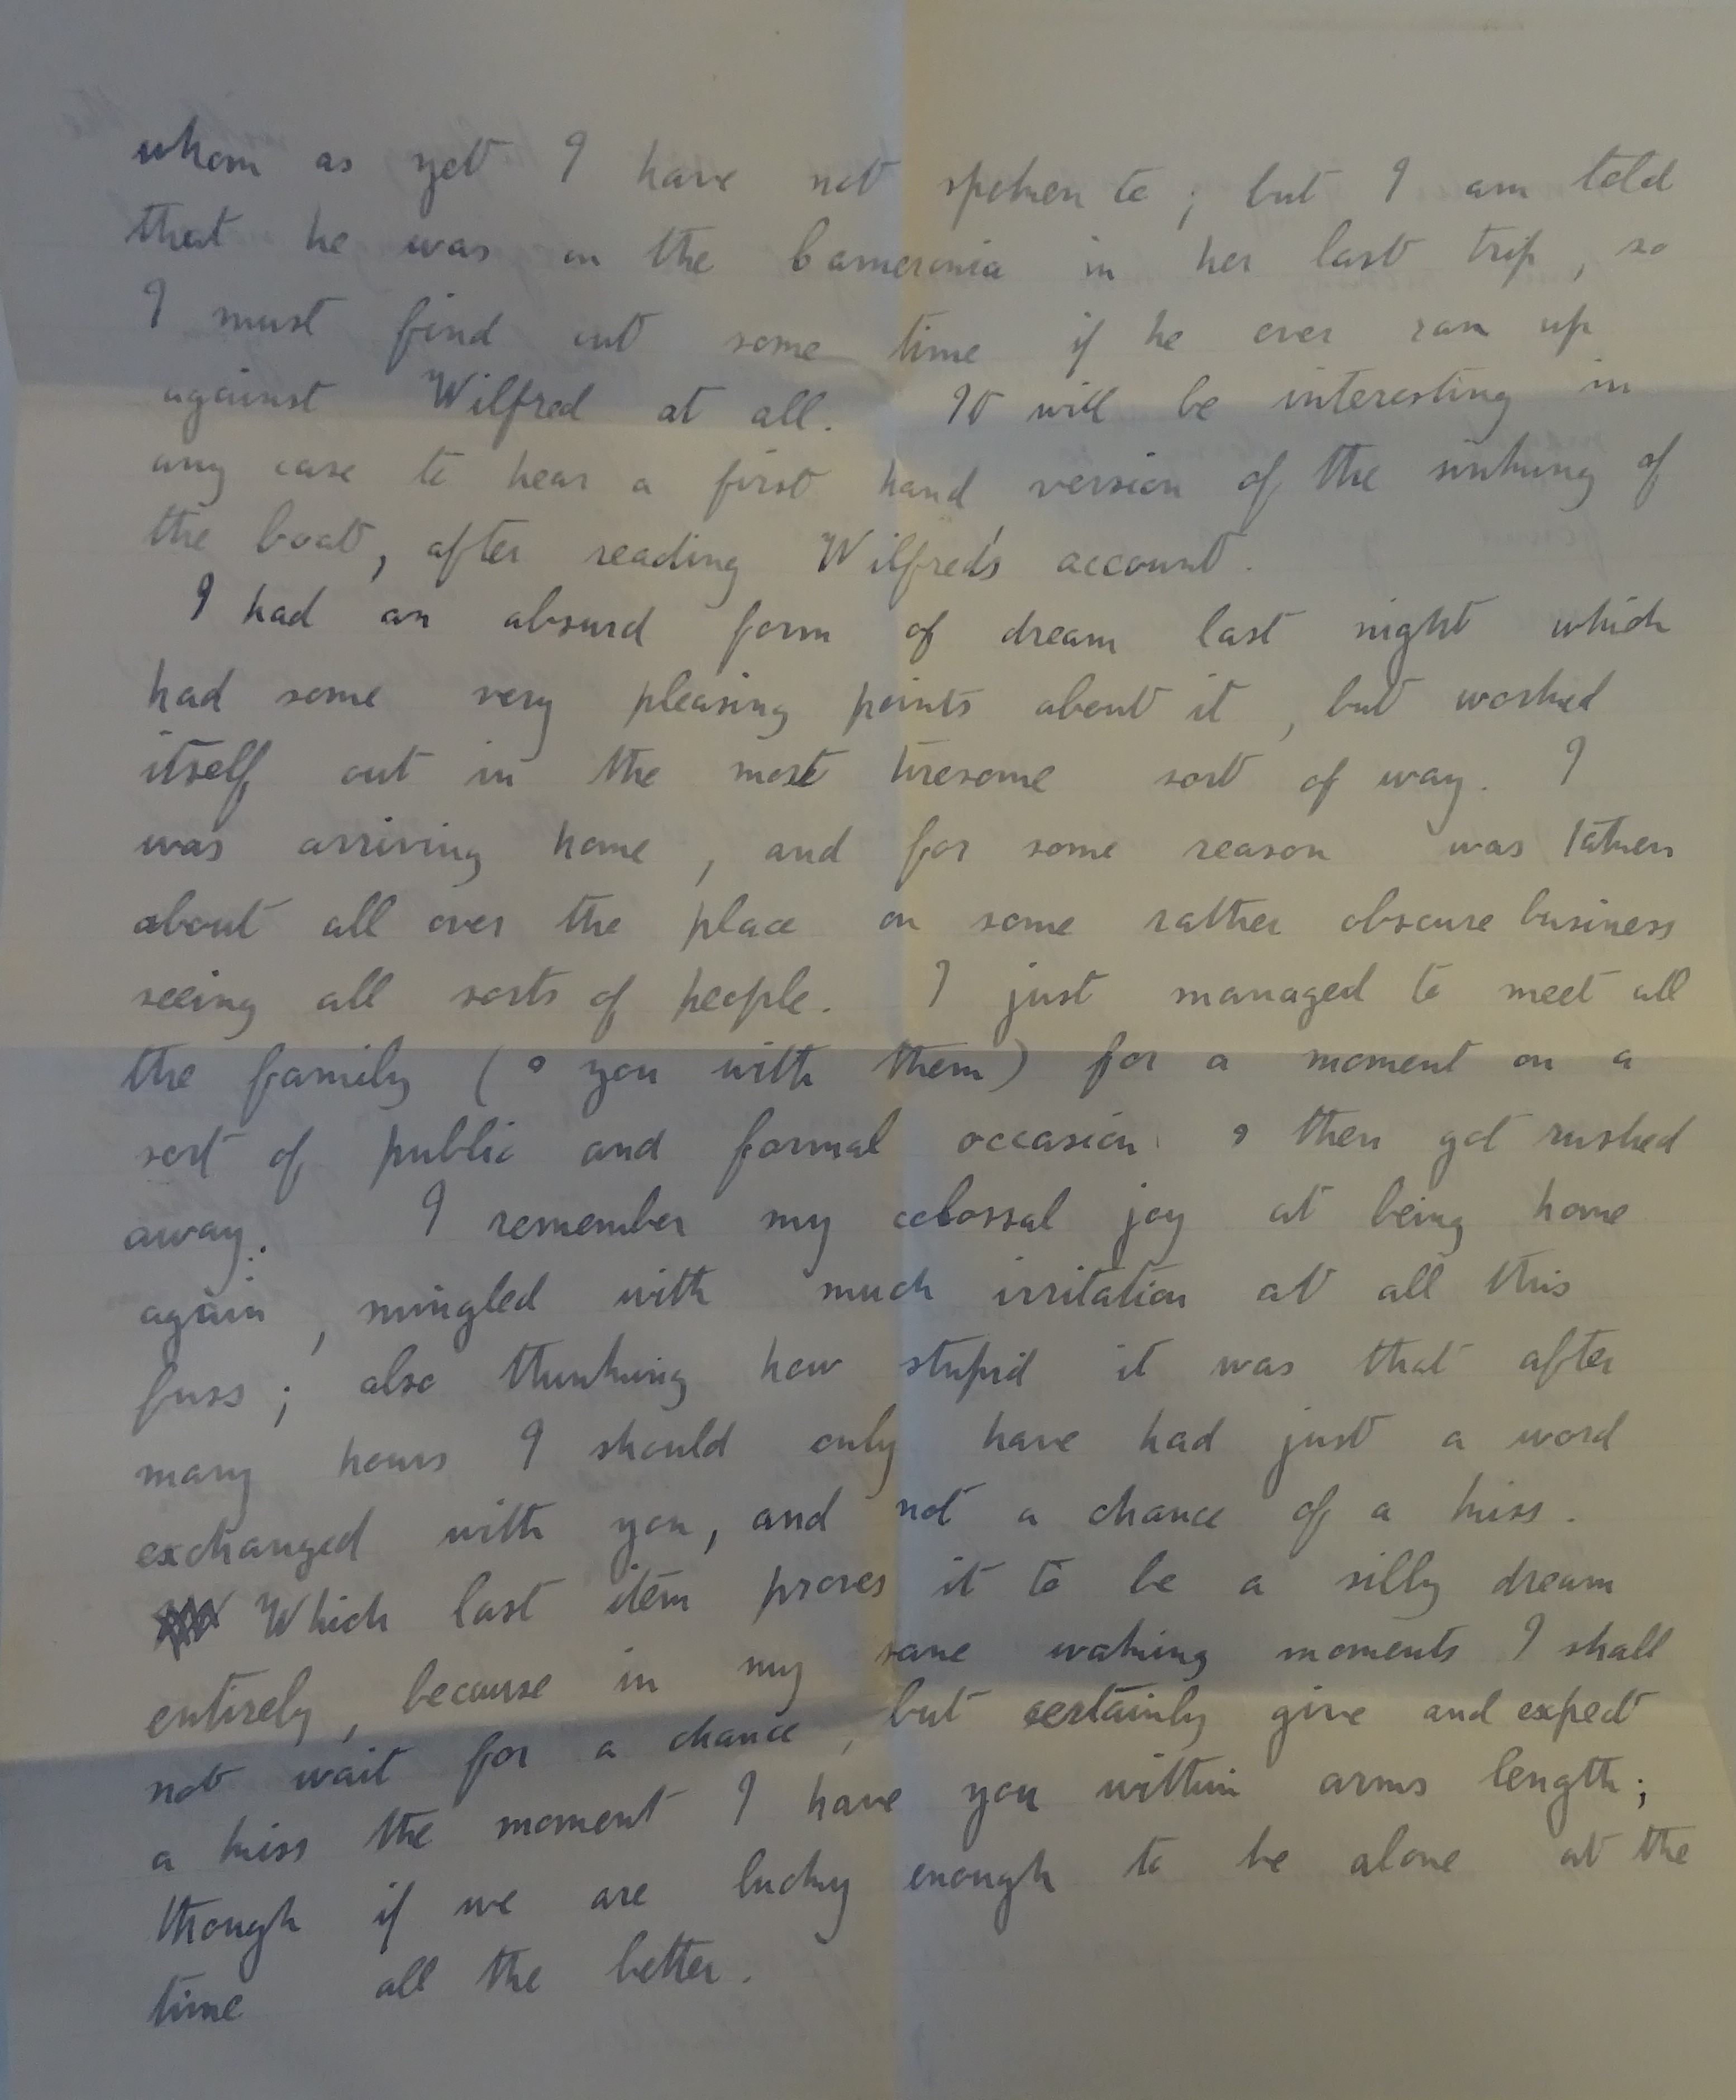 whom as yet I have not spoken to ; but I am told
that he was on the Cameronia in her last trip , so
I must find out some time if he ever ran up
against Wilfred at all. It will be interesting in
any case to hear a first hand version of the sinking of
the boat, after reading Wilfred's account.
I had an absurd form of dream last night which
had some very pleasing points about it , but worked
itself out in the most tiresome sort of way. I
was arriving home , and for some reason was taken
about all over the place on some rather obscure business
seeing all sorts of people. I just managed to meet all
the family ( & you with them) for a moment on a
sort of public and formal occasion & then got rushed
away. I remember my colossal joy at being home
again , mingled with much irritation at all this
fuss ; also thinking how stupid it was that after
many hours I should only have had just a word
exchanged with you, and not a chance of a kiss.
Which last item proves it to be a silly dream
entirely, because in my sane waking moments I shall
not wait for a chance , but certainly give and expect
a kiss the moment I have you within arms length;
though if we are lucky enough to be alone at the
time all the better.